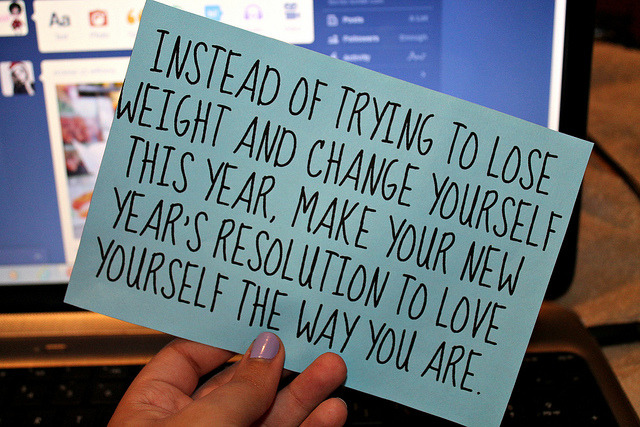 Aa
INSTEAD OF TRYING TO LOSE
WEIGHT AND CHANGE YOURSELF
THIS YEAR, MAKE YOUR NEW
YEAR'S RESOLUTION TO LOVE
YOURSELF THE WAY YOU ARE.